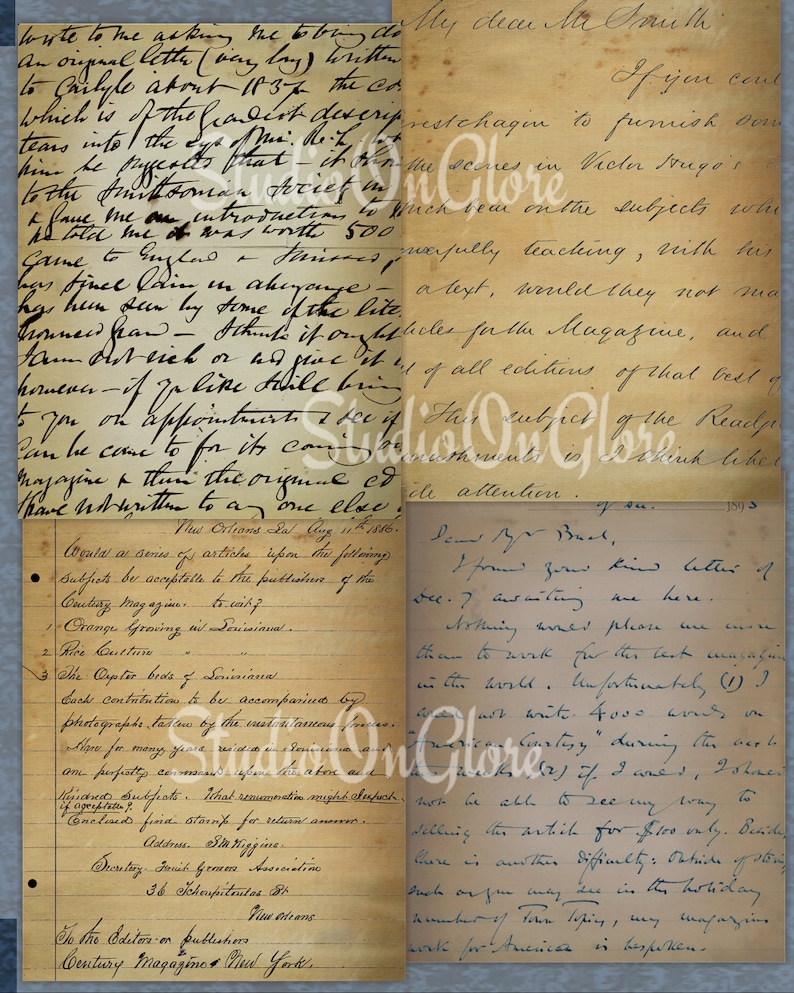 wrote to me asking me to bring do
an original letter (very long) written
to Carlyle about 1837 the co
which is of the Grandest descrip
tears into the eyes of Mr.
him he suggested that – it
to the Smithsonian Society in
& gave me an introduction to
he told me it was worth 500
came to England &
has since lain in abeyance –
has been seen by some of the lite
– I think it ought
I am not rich or wd give it
however – if you like I will bring
to you on appointment & see if
can be come to for its coming
magazine & then the original cd
I have not written to any one else
My dear Mr Smith
If you coul
restchagin to furnish som
the scenes in Victor Hugo's
hich bear on the subjects whi
werfully teaching, with his
a text, would they not ma
ticles for the Magazine, and
of all editions of that best
This subject of the
is I think likel
attention.
New Orleans La Aug 11th 1886.
Would a series of articles upon the following
subjects be acceptable to the publishers of the
Century Magazine. to wit?
1 Orange Growing in Louisiana.
2 Rice Culture " "
3 The Oyster beds of Louisiana
Each contribution to be accompanied by
photographs taken by the instantaneous process.
Have for many years resided in Louisiana and
am perfectly conversant upon the above and
Kindred subjects. What remuneration might I expect
if acceptable?
Enclosed find stamp for return answer.
Address. S M Higgins.
Secretary. Fruit Growers Association
36 Tchoupitoulas St
New Orleans
To the Editors or publishers
Century Magazine New York.
1893
Dear Mr Buel,
I found your kind letter of
Dec. 7 awaiting me here.
Nothing would please me more
than to work for the best magazine
in the world. Unfortunately (1) I
could not write 4000 words on
"American Courtesy" during the next
weeks (2) if I could, I should
not be able to see my way to
selling the article for $100 only. Beside
there is another difficulty: outside of stories
such as you may see in the holiday
number of Town Topics, my magazine
work for America is bespoken.
StudioOnGlore
StudioOnGlore
StudioOnGlore